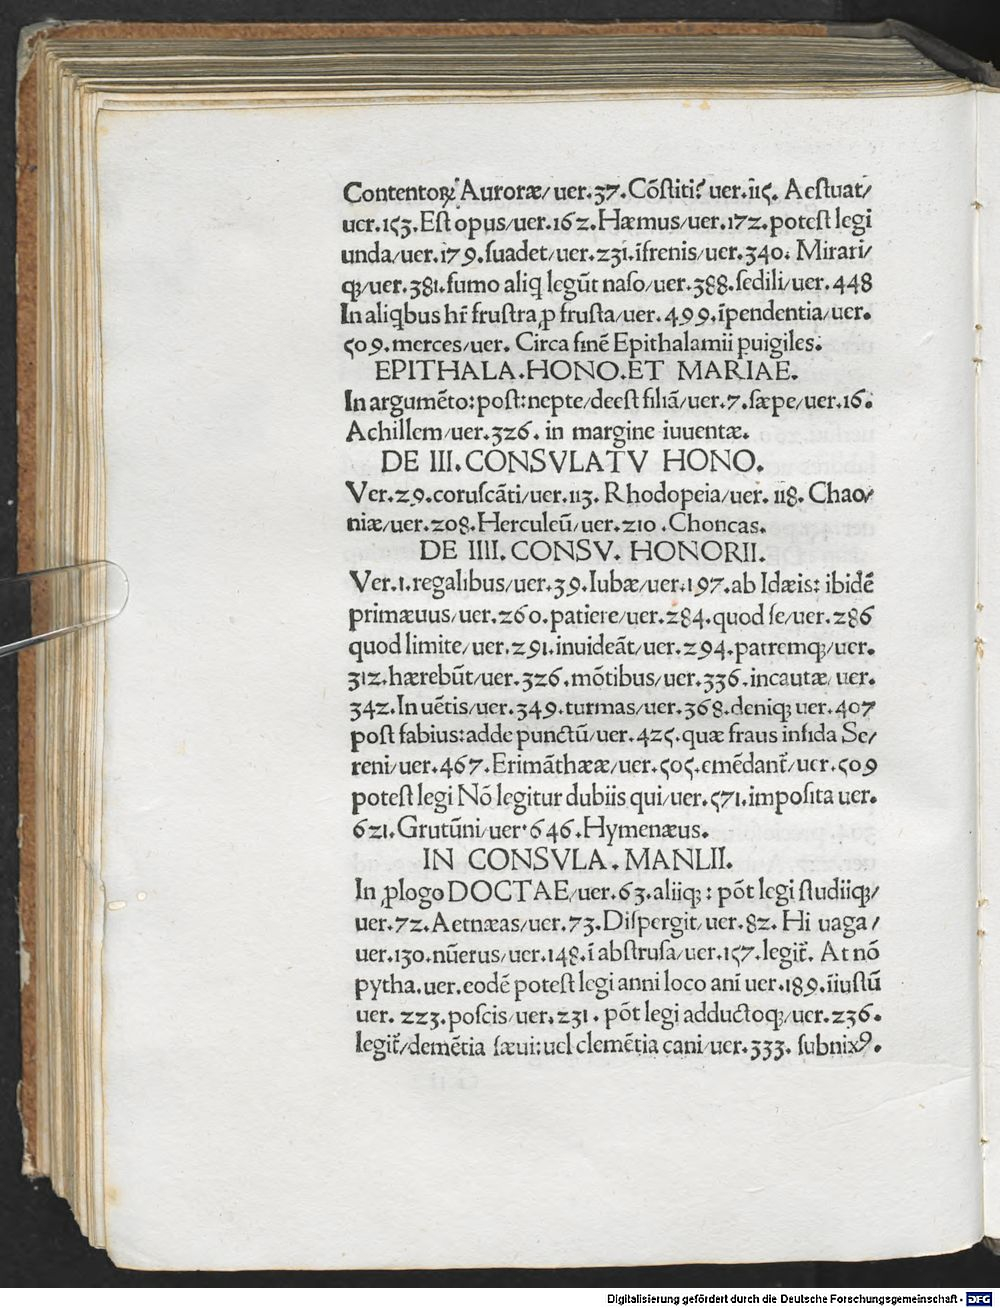 Contentoꝝ Auroræ/ uer.37. Cõstiti? uer.115. Aestuat/
uer.153. Est opus/uer.162. Hæmus/uer.172. potest legi
unda/uer.179. suadet/uer.231. ĩfrenis/uer.340. Mirari/
qꝫ/uer.381. fumo aliq̃ legũt naso/uer.388. sedili/uer.448
In aliqbus hr̃ frustra ꝓ frusta/uer.499. ĩpendentia/uer.
509. merces/uer. Circa finẽ Epithalamii puigiles.
EPITHALA.HONO.ET MARIAE.
In argumẽto: post: nepte/deest filiã/uer.7. sæpe/uer.16.
Achillem/uer.326. in margine iuuentæ.
DE III.CONSVLATV HONO.
Ver.29. coruscãti/uer.113. Rhodopeia/uer.118. Chao/
niæ/uer.208. Herculeũ/uer.210. Choncas.
DE IIII. CONSV. HONORII.
Ver.1. regalibus/uer.39. Iubæ/uer.197. ab Idæis: ibidẽ
primæuus/uer.260. patiere/uer.284. quod se/uer.286
quod limite/uer.291. inuideãt/uer.294. patremqꝫ/uer.
312. hærebũt/uer.326. mõtibus/uer.336. incautæ/uer.
342. In uẽtis/uer.349. turmas/uer.368. deniqꝫ uer.407
post fabius: adde punctũ/uer.425. quæ fraus infida Se/
reni/uer.467. Erimãthææ/uer.505. emẽdant̃/uer.509
potest legi Nõ legitur dubiis qui/uer.571. imposita uer.
621. Grutũni/uer.646. Hymenæus.
IN CONSVLA. MANLII.
In ꝓlogo DOCTAE/uer.63. aliiqꝫ: põt legi studiiqꝫ/
uer.72. Aetnæas/uer.73. Dispergit/uer.82. Hi uaga/
uer.130. nũerus/uer.148. ĩ abstrusa/uer.157. legit̃. At nõ
pytha. uer. eodẽ potest legi anni loco ani uer.189. iiustũ
uer. 223. poscis/uer.231. põt legi adductoqꝫ/uer.236.
legit̃/demẽtia sæui: uel clemẽtia cani/uer.333. subnixꝰ.
Digitalisierung gefördert durch die Deutsche Forschungsgemeinschaft - DFG